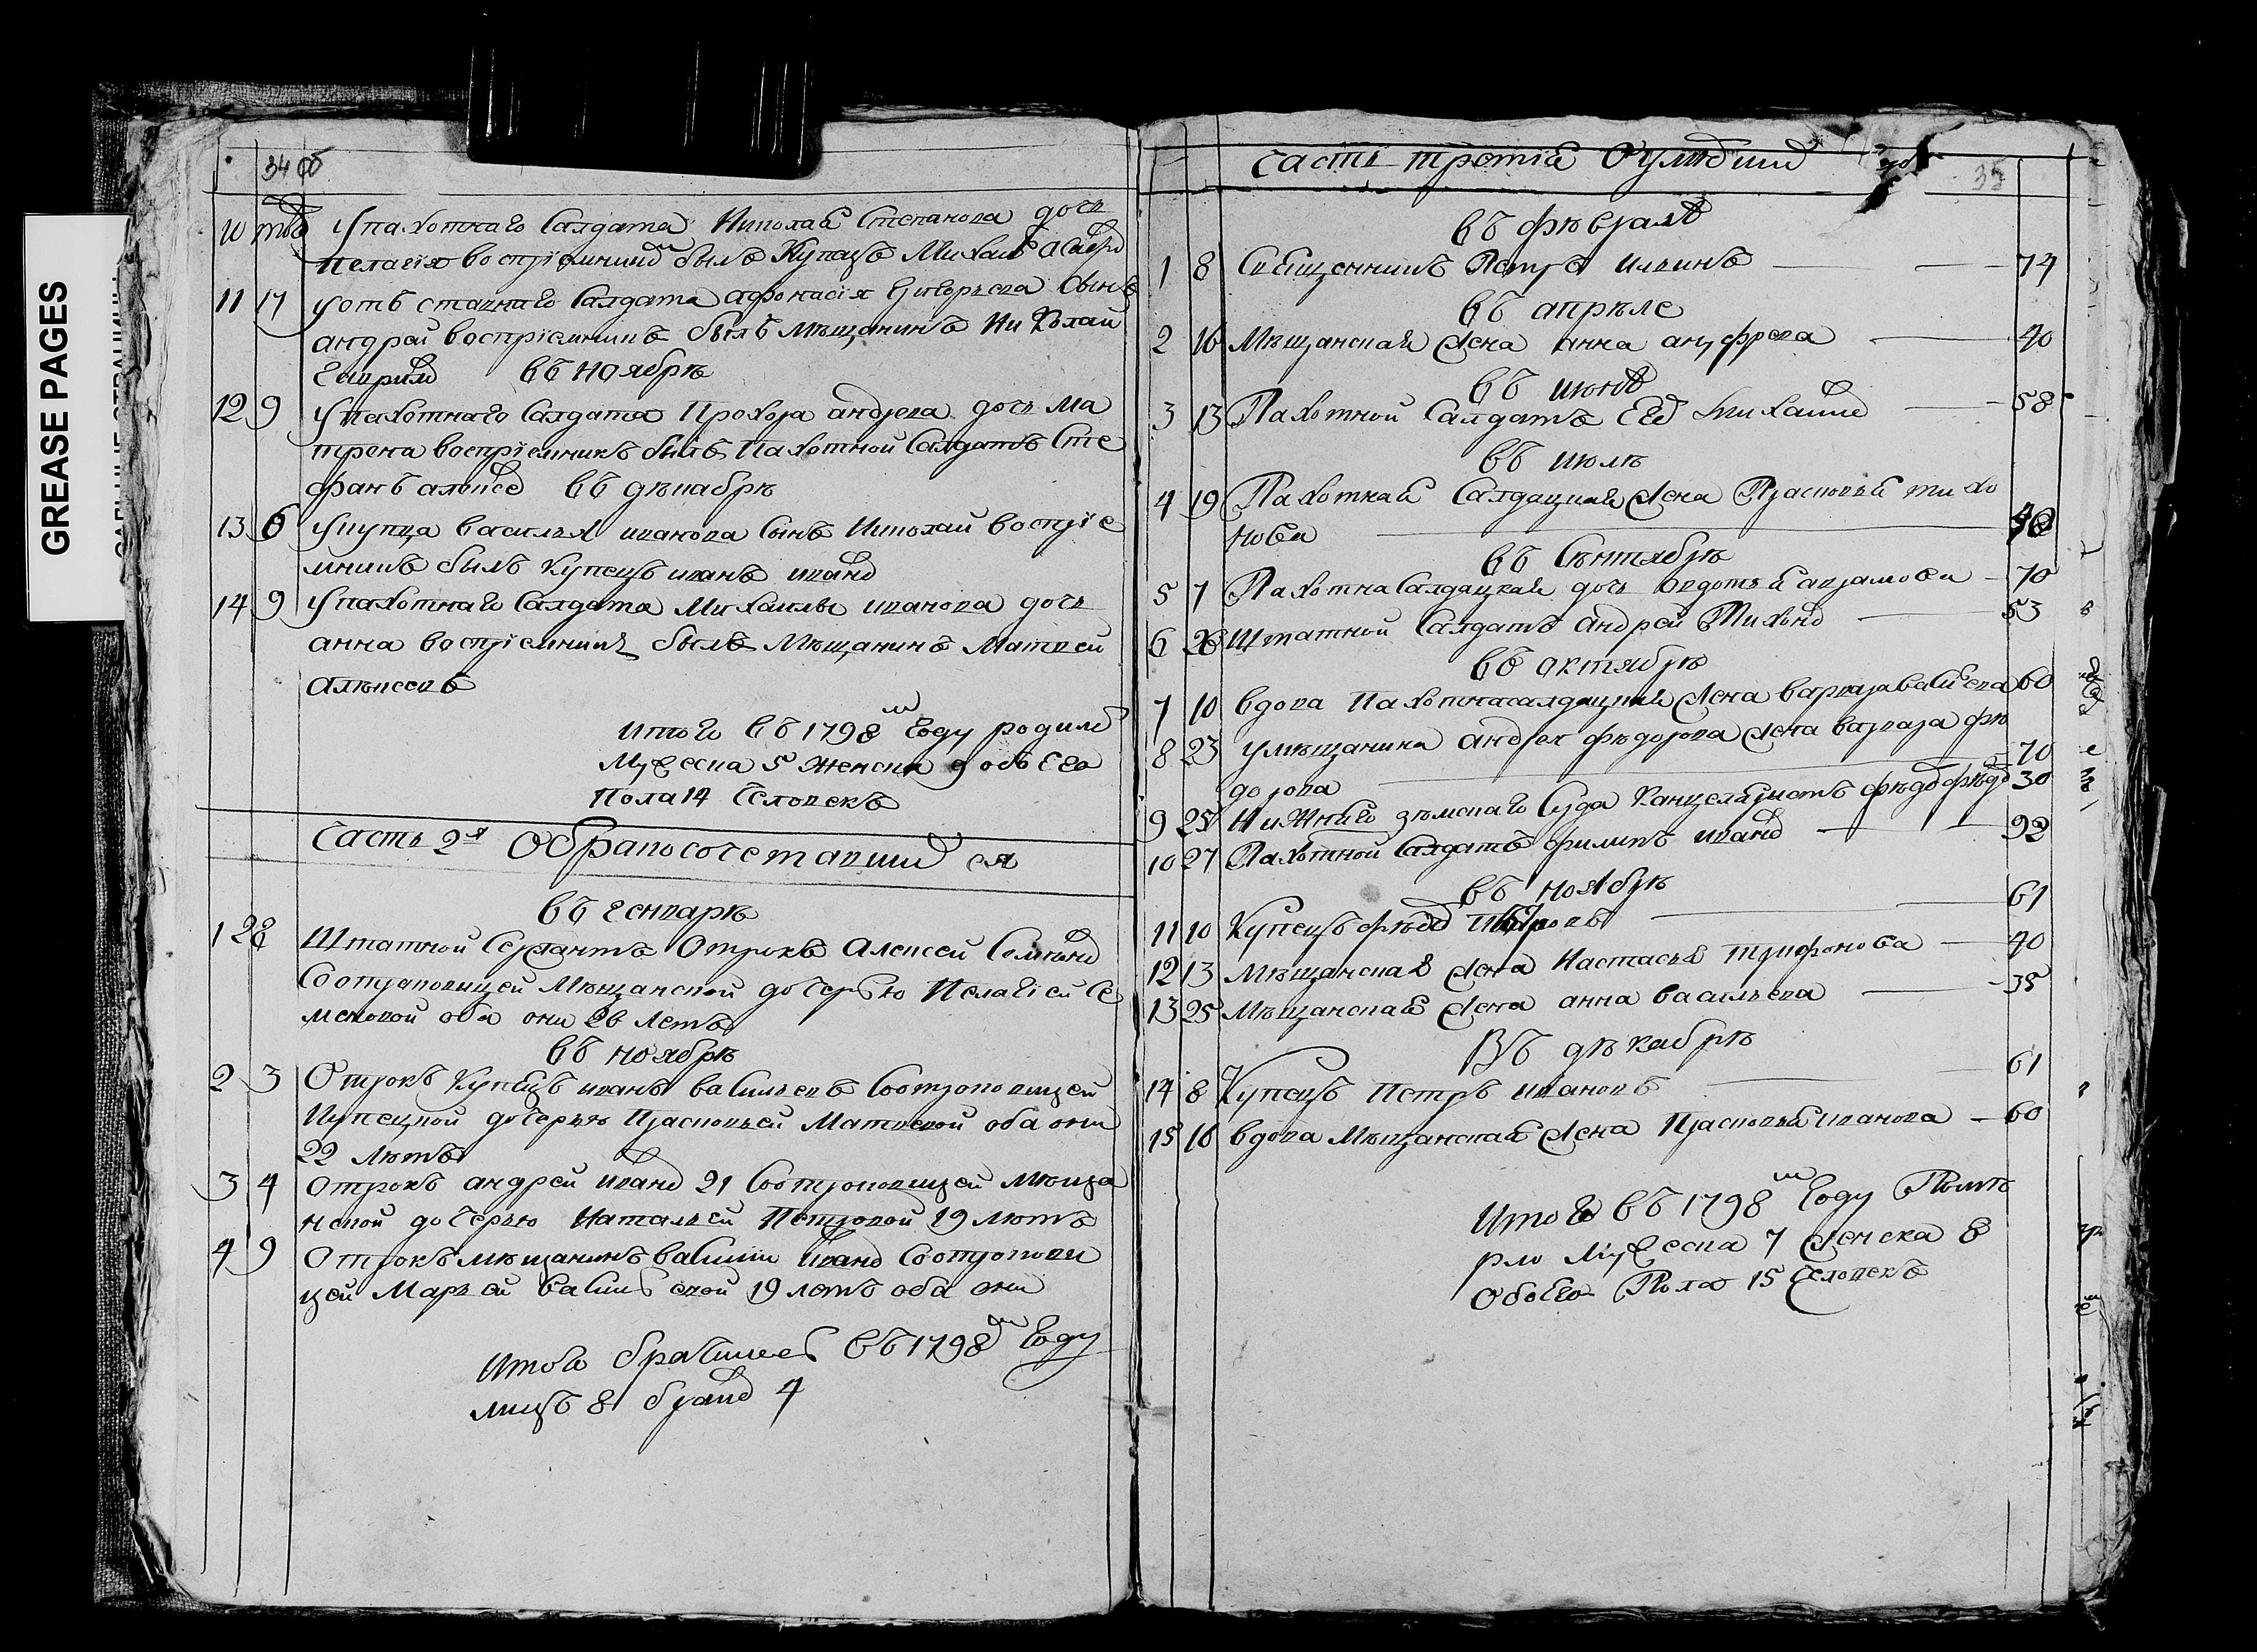 GREASE PAGES
34 об
10 тѣ У пахотнаго Салдата Николая Степанова дочь
Пелагія воспріемникъ былъ Купецъ Михаилъ
11 17 У отъ ставнаго Салдата афонасія Григорьева Сынъ
андрей воспріемникъ былъ мѣщанинъ Николай
Гаврило въ ноябрѣ
12 9 У пахотнаго Салдата Прохора андреева дочь Ма
трена воспріемникъ былъ Пахотной Салдатъ Сте
фанъ алеѯѣ въ декабрѣ
13 6 У купца василья иванова Сынъ Николай воспріе
мникъ былъ Купецъ иванъ иванов
14 9 У пахотнаго Салдата Михаилы иванова дочь
анна воспріемникъ былъ мѣщанинъ Матвей
Алѣксеевъ
Итого въ 1798м году родилос
Мужеска 5 женска 9 обоего
Пола 14 Человекъ
Часть 2я О бракосочетавшихся
въ генварѣ
1 28 Штатной Сержантъ Отрокъ Алексей Семенов
Со отроковицей Мѣщанской дочерью Пелагіей Се
меновой оба они 26 летъ
въ ноябрѣ
2 3 Отрокъ Купецъ иванъ васильевъ Со отроковицей
Купецкой дочерью Прасковьей Матвевой оба они
22 лѣтъ
3 4 Отрокъ андрей иванов 21 Со отроковицей Мѣща
нской дочерью Натальей Петровой 19 лѣтъ
4 9 Отрокъ мѣщанинъ василий иванов Со отрокови
цей Марьей васильевой 19 летъ оба они
Итого браковшес въ 1798м году
лицъ 8 браков 4
Часть третія О умершихъ 35
въ февралѣ
1 8 Священникъ Петръ Ильинъ 74
въ апрѣле
2 16 Мѣщанская жена анна 40
въ июнѣ
3 13 Пахотной Салдатъ Михаилов 58
въ июлѣ
4 19 Пахотная Салдацкая жена Прасковья тихо
нова
въ Сентябрѣ
5 7 Пахотна Салдацкая дочь авдотья аврамова 70
6 28 Штатной Салдатъ Андрей Тихонов 53
въ октябрѣ
7 10 вдова Пахотнасалдацкая жена варвара васильева 60
8 23 у мѣщанина андрея фѣдорова жена варвара фѣ
дорова 70
9 25 Нижняго зѣмскаго Суда Канцеляристъ фѣдоръ 30
10 27 Пахотной Салдатъ филипъ иванов 92
въ ноябрѣ
11 10 Купецъ фѣдоръ Петровъ 61
12 13 Мѣщанская жена Настасья трифонова 40
13 25 Мѣщанская жена анна васильева 35
Въ дѣкабрѣ
14 8 Купецъ Петръ ивановъ 61
15 16 вдова Мѣщанская жена Прасковья иванова 60
Итого въ 1798м году Поме
рло Мужеска 7 женска 8
обоего Пола 15 Человекъ